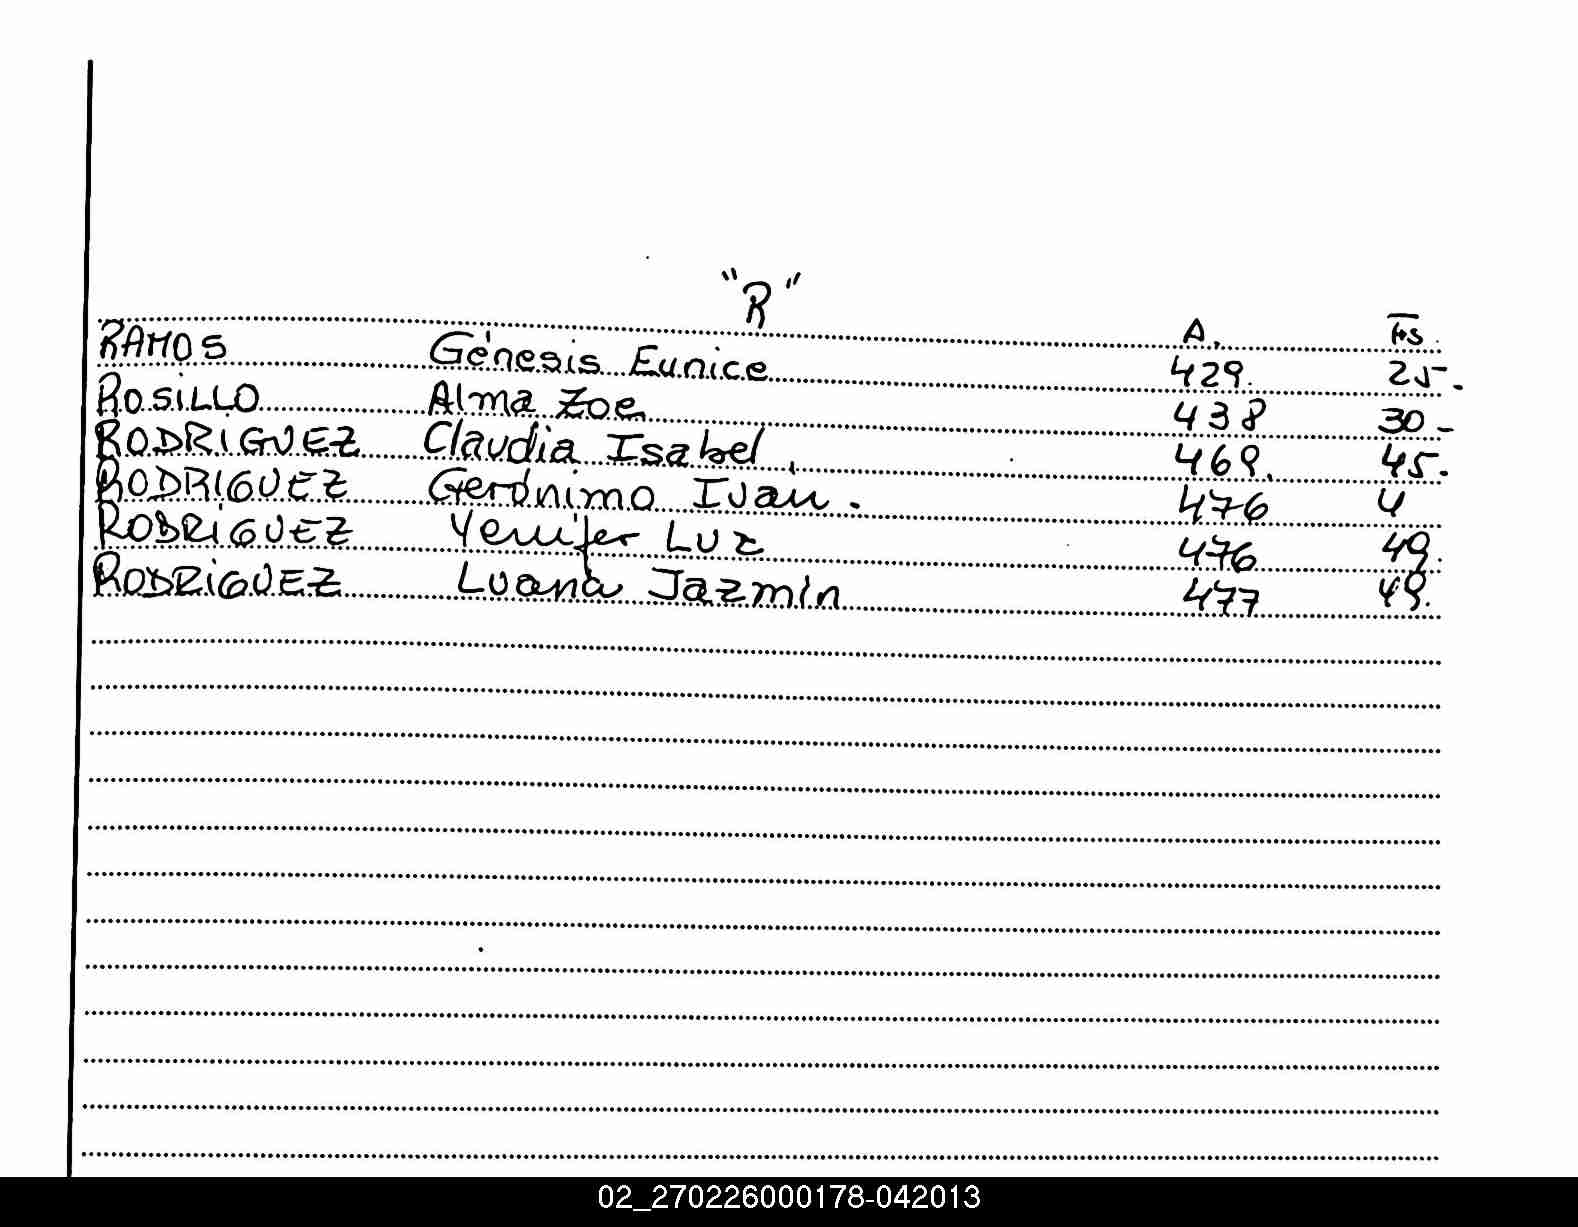 "R"
A. Fs.
RAMOS Génesis Eunice 429. 25-.
ROSiLLO Alma Zoe 438 30-
RODRIGUEZ Claudia Isabel. 469. 45.
RODRIGUEZ Gerónimo Ivan. 476 4
RODRiGUEZ Yenifer Luz 476 49.
RODRiGUEZ Luana Jazmin 477 49.
02_270226000178-042013